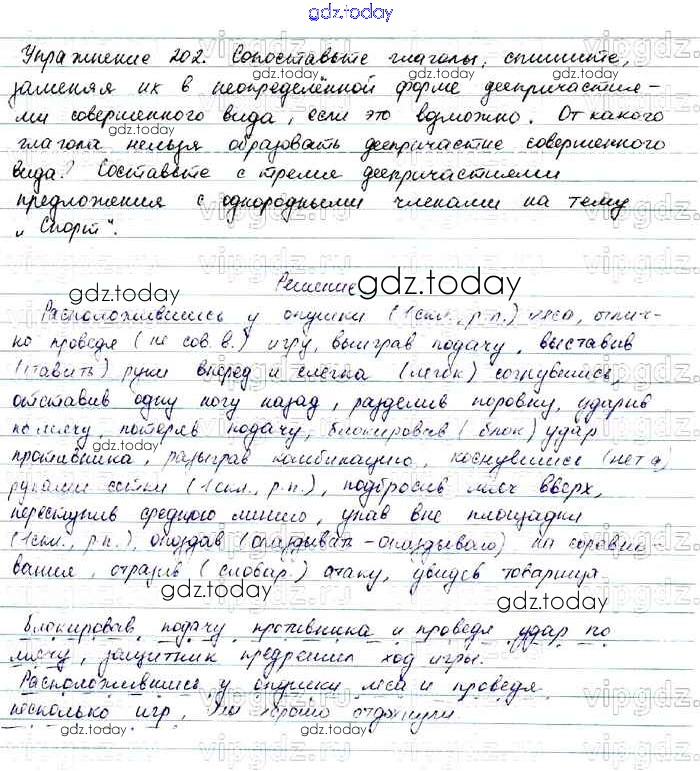 gdz.today
Упражнение 202. Сопоставьте глаголы, спишите,
заменяя их в неопределённой форме деепричастия-
ми совершенного вида, если это возможно. От какого
глагола нельзя образовать деепричастие совершенного
вида? Составьте с тремя деепричастиями
предложения с однородными членами на тему
„Спорт".
Решение
Расположившись у опушки (1 скл., р.п.) леса, отлич-
но проведя (не сов. в.) игру, выиграв подачу, выставив
(ставить) руки вперед и слегка (легок) согнувшись,
отставив одну ногу назад, разделив поровну, ударив
по мячу, потеряв подачу, блокировав (блок) удар
противника, разыграв комбинацию, коснувшись (нет а)
руками сетки (1 скл., р.п.), подбросив мяч вверх,
переступив среднюю линию, упав вне площадки
(1 скл., р.п.), опоздав (опаздывать - опаздываю) на соревно-
вания, отразив (словар.) атаку, увидев товарища.
Блокировав подачу противника и проведя удар по
мячу, защитник предрешил ход игры.
Расположившись у опушки леса и проведя
несколько игр, мы хорошо отдохнули.
gdz.today